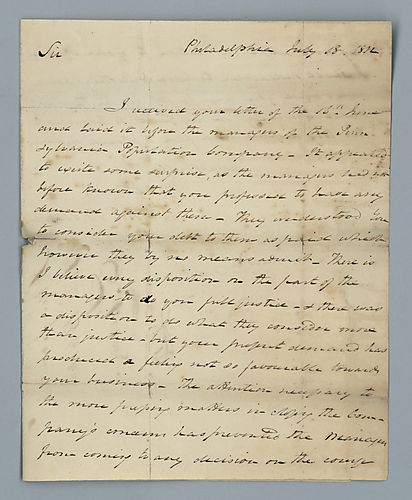 Philadelphia July 18. 1812
Sir
I received your letter of the 16th June
and laid it before the managers of the Penn
sylvania Population Company - It appeared
to excite some surprise as the managers had not
before known that you professed to have any
demand against them - They understood you
to consider your debt to them as paid which
however they by no means admit - There is
I believe every disposition on the part of the
managers to do you full justice - & there was
a disposition to do what they consider more
than justice - but your present demand has
produced a feeling not so favourable towards
your business - The attention necessary to
the more pressing matters in the Com-
pany's concerns has prevented the Managers
from coming to any decision on the course